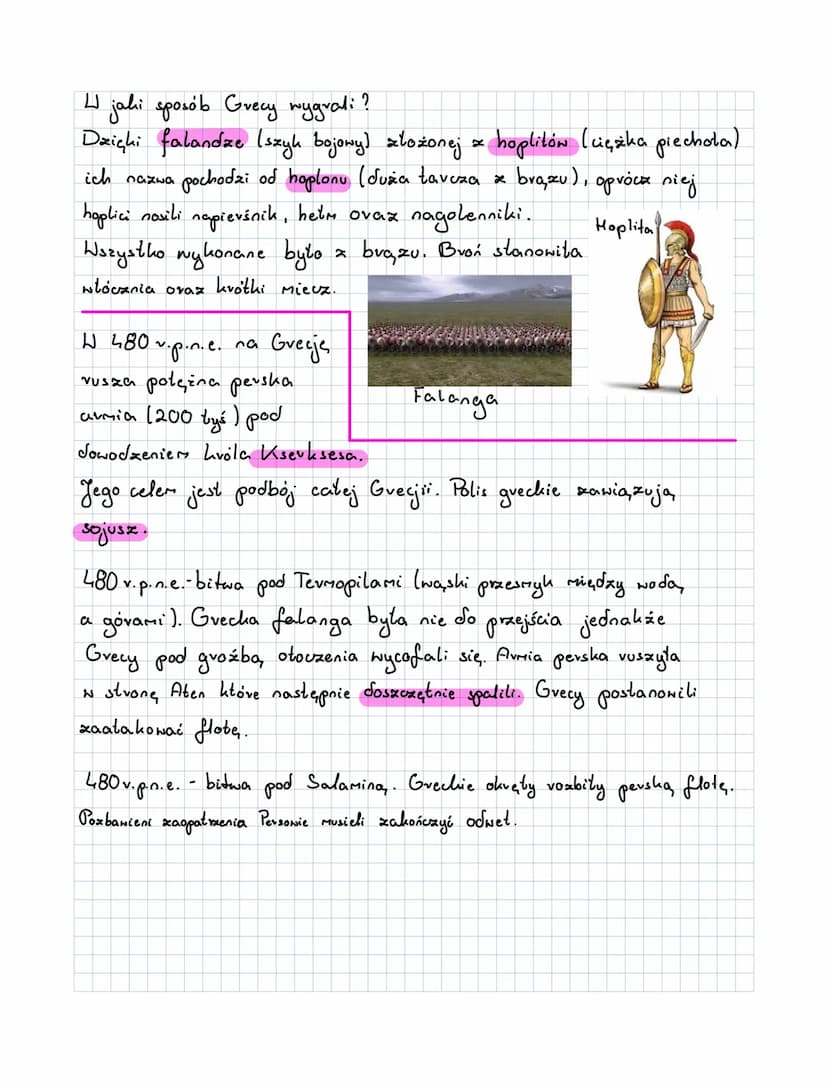 W jaki sposób Grecy wygrali?
Dzięki falandze (szyk bojowy) złożonej z hoplitów (ciężka piechota)
ich nazwa pochodzi od hoplonu (duża tarcza z brązu), oprócz niej
hoplici nosili napierśnik, hełm oraz nagolenniki.
Hoplita
Wszystko wykonane było z brązu. Broń stanowiła
włócznia oraz krótki miecz.
W 480 r.p.n.e. na Grecję
rusza potężna perska
armia (200 tyś) pod
Falanga
dowodzeniem króla Kserksesa.
Jego celem jest podbój całej Grecjii. Polis greckie zawiązują
sojusz.
480 r.p.n.e.-bitwa pod Termopilami (wąski przesmyk między wodą
a górami). Grecka falanga była nie do przejścia jednakże
Grecy pod groźbą otoczenia wycofali się. Armia perska ruszyła
w stronę Aten które następnie doszczętnie spalili. Grecy postanowili
zaatakować flotę.
480r.p.n.e. - bitwa pod Salaminą. Greckie okręty rozbiły perską flotę.
Pozbawieni zaopatrzenia Persowie musieli zakończyć odwet.